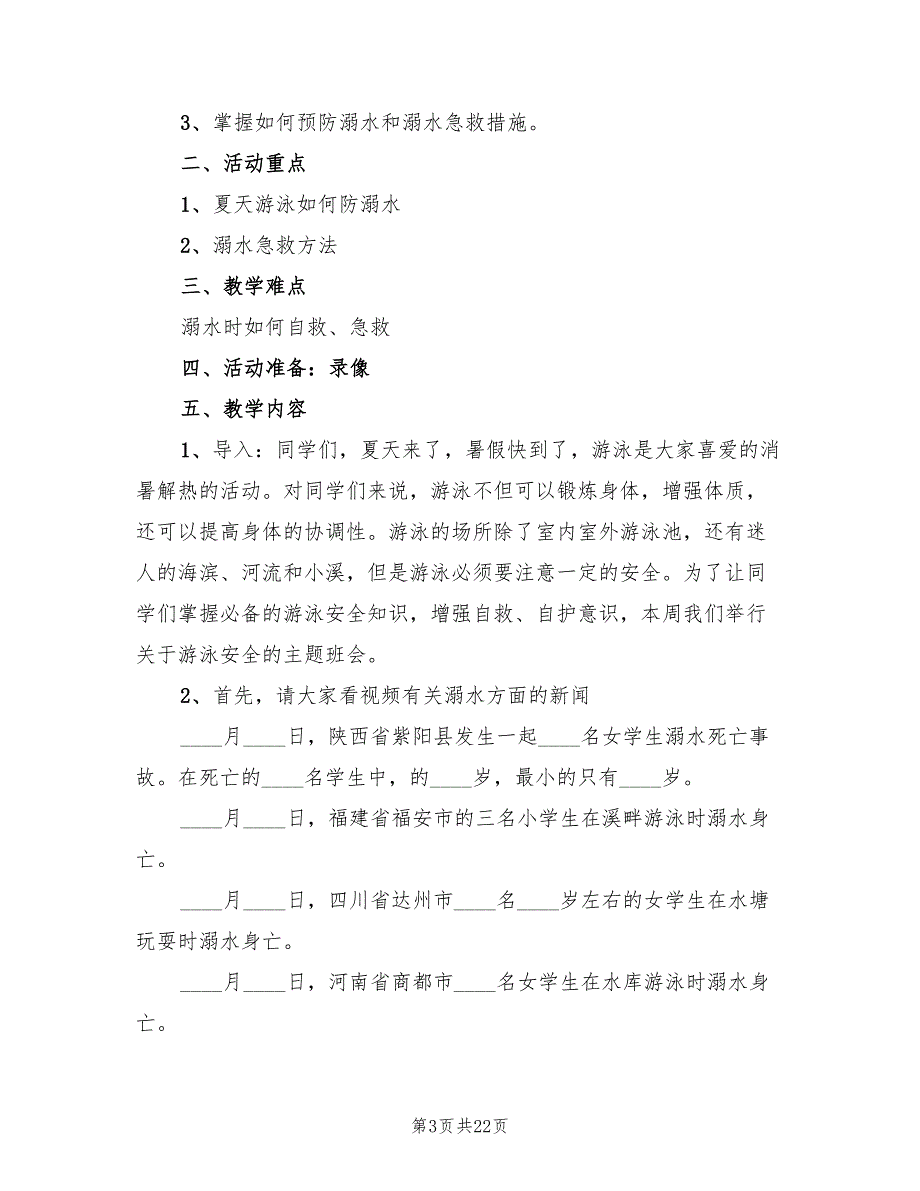 3、掌握如何预防溺水和溺水急救措施。
二、活动重点
1、夏天游泳如何防溺水
2、溺水急救方法
三、教学难点
溺水时如何自救、急救
四、活动准备：录像
五、教学内容
1、导入：同学们，夏天来了，暑假快到了，游泳是大家喜爱的消
暑解热的活动。对同学们来说，游泳不但可以锻炼身体，增强体质，
还可以提高身体的协调性。游泳的场所除了室内室外游泳池，还有迷
人的海滨、河流和小溪，但是游泳必须要注意一定的安全。为了让同
学们掌握必备的游泳安全知识，增强自救、自护意识，本周我们举行
关于游泳安全的主题班会。
2、首先，请大家看视频有关溺水方面的新闻
____月____日，陕西省紫阳县发生一起____名女学生溺水死亡事
故。在死亡的____名学生中，的____岁，最小的只有____岁。
____月____日，福建省福安市的三名小学生在溪畔游泳时溺水身
亡。
____月____日，四川省达州市____名____岁左右的女学生在水塘
玩耍时溺水身亡。
____月____日，河南省商都市____名女学生在水库游泳时溺水身
亡。
第3页共22页